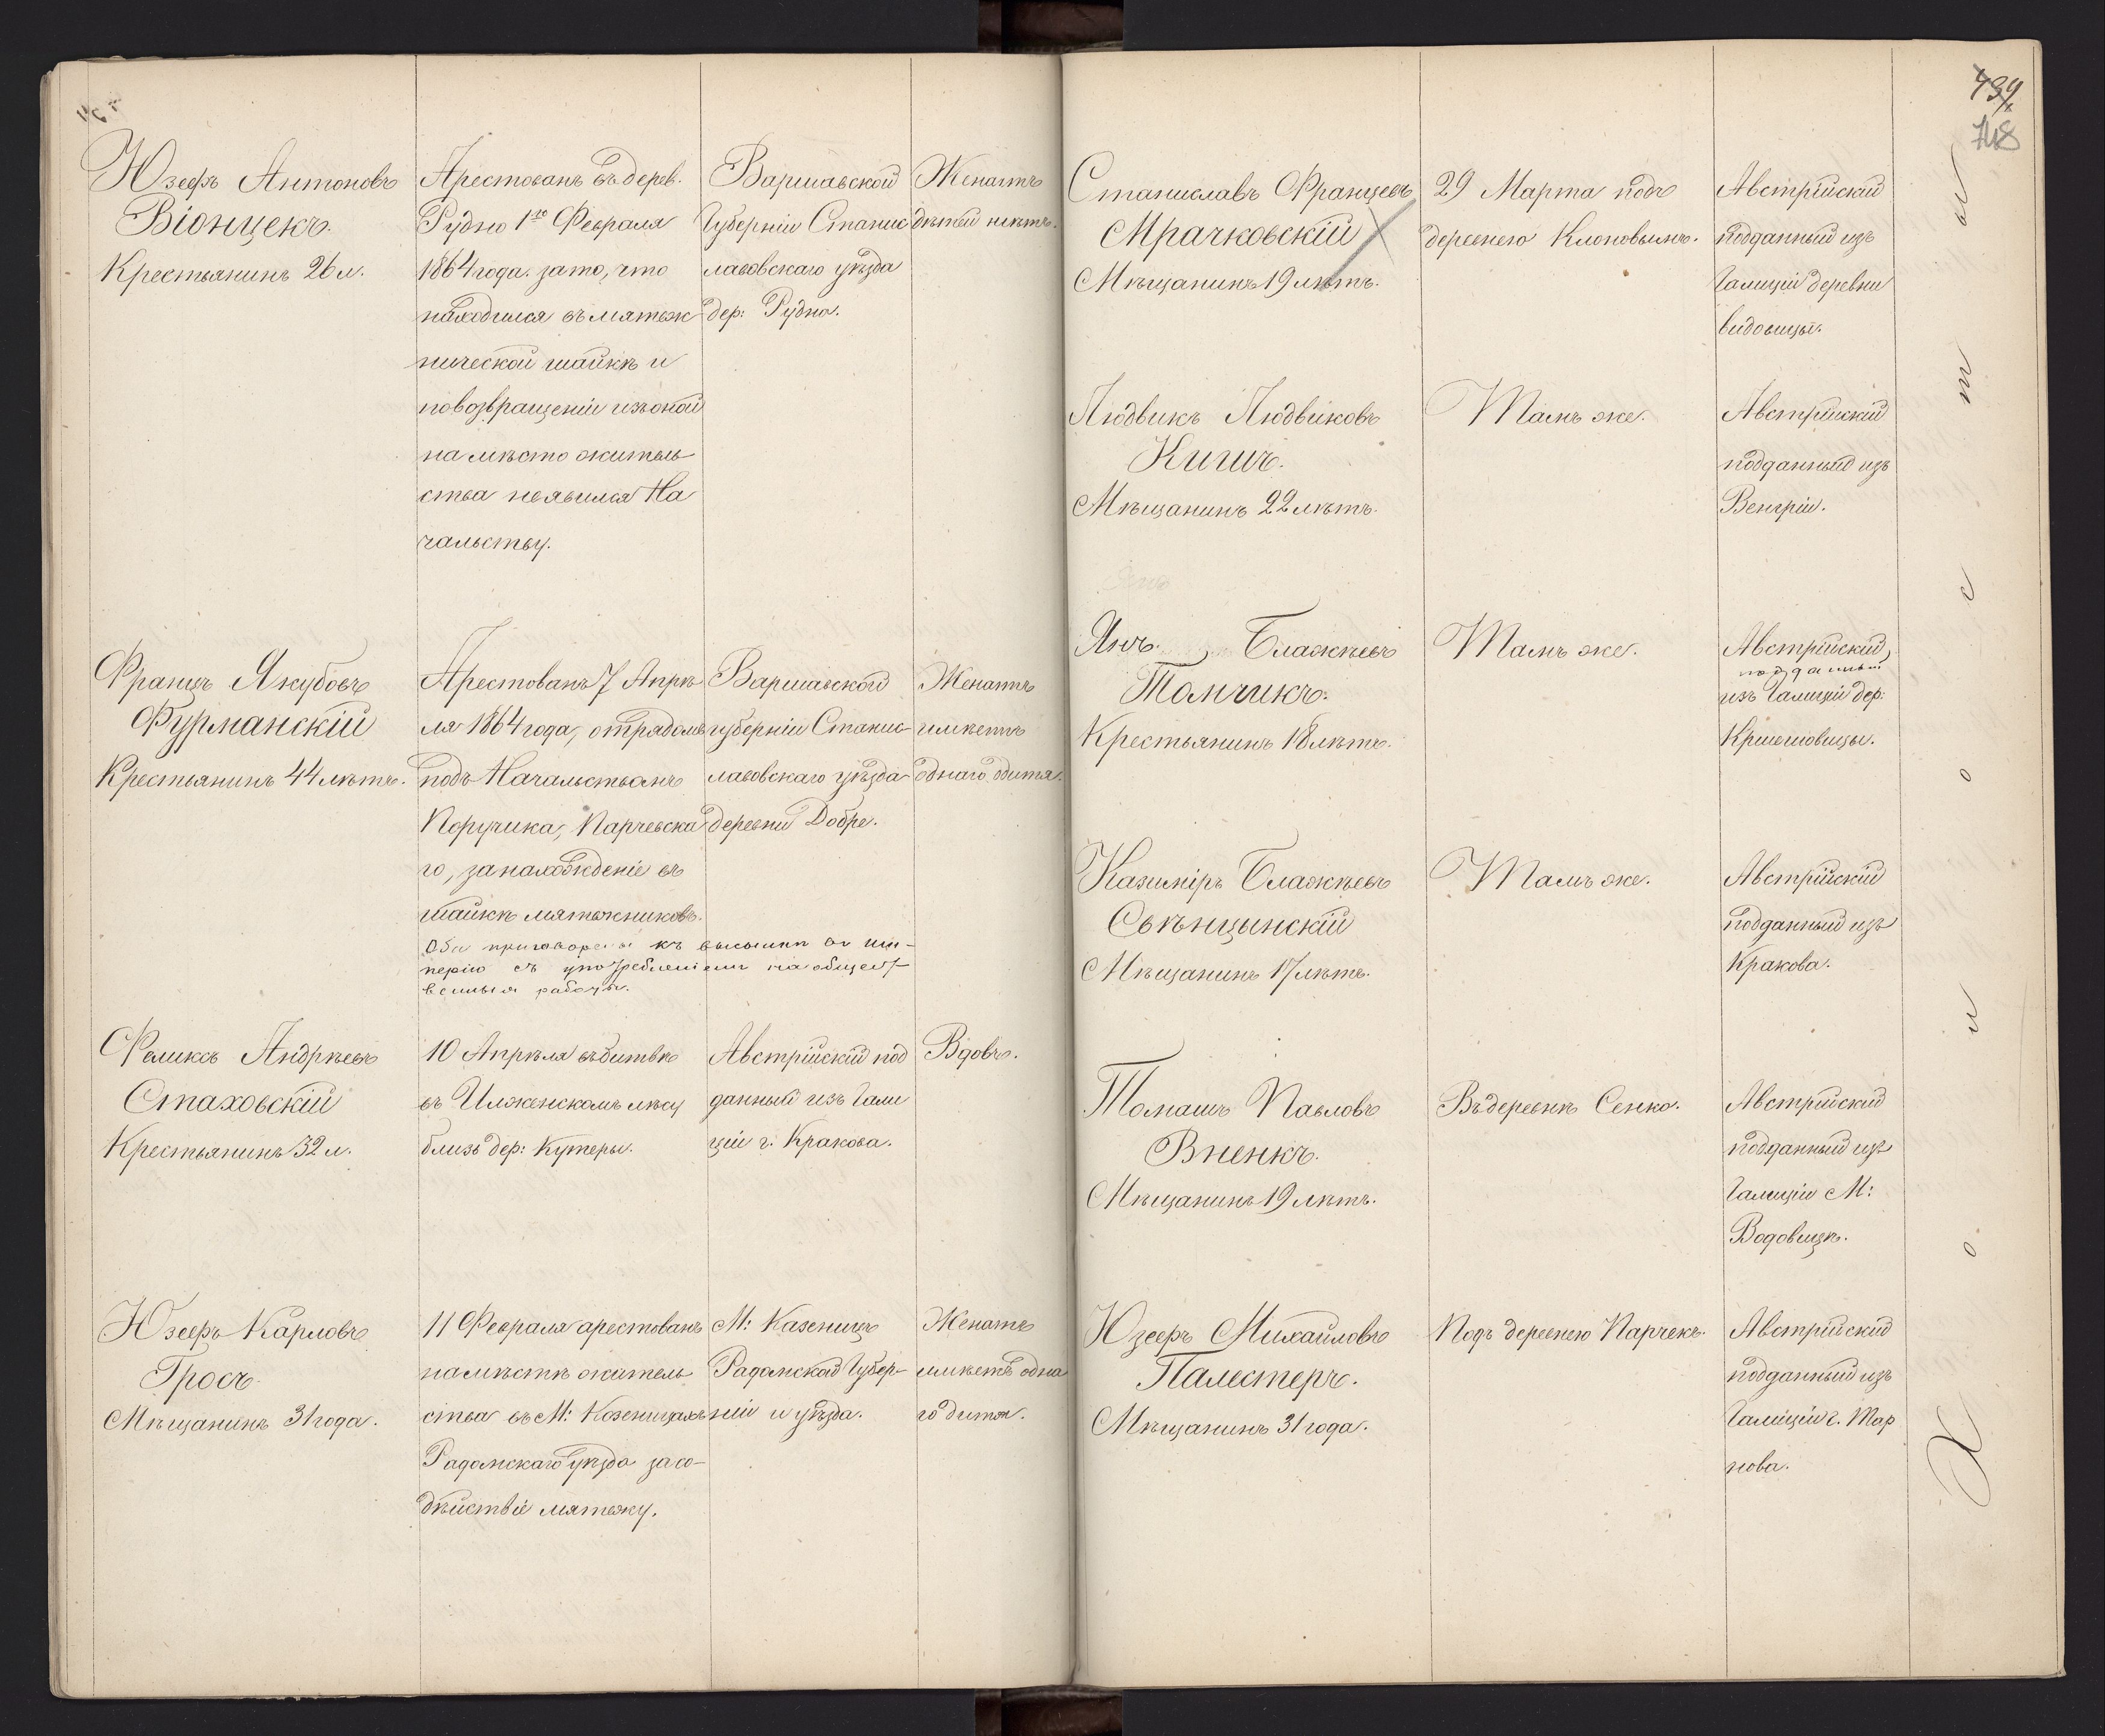 Юзефъ Антоновъ
Віонцекъ.
Крестьянинъ 26 л.
Арестованъ въ дерев.
Рудно 1го Февраля
1864 года. за то, что
находился въ мятеж
нической шайкѣ и
по возвращеніи изъ оной
на мѣсто житель
ства не явился На
чальству.
Варшавской
Губерніи Станис
лавовскаго уѣзда
дер: Рудно.
Женатъ
дѣтей нѣтъ.
Францъ Якубовъ
Фурманскій
Крестьянинъ 44 лѣтъ.
Арестованъ 7 Апрѣ
ля 1864 года, отрядомъ
подъ Начальствомъ
Поручика, Парчевска
го, за нахожденіе въ
шайкѣ мятежниковъ.
Варшавской
губерніи Станис-
лавовскаго уѣзда
деревни Добре.
Женатъ
имѣетъ
однаго дитя.
Оба приговорены къ высылкѣ въ Им-
перію съ употребленіемъ на общест
венныя работы.
Феликсъ Андрѣевъ
Стаховскій
Крестьянинъ 32 л.
10 Апрѣля въ битвѣ
въ Илженскомъ лѣсу
близь дер: Кутеры.
Австрійскій под
данный изъ Гали
ціи г. Кракова.
Вдовъ.
Юзефъ Карловъ
Гросъ.
Мѣщанинъ 31 года.
11 Февраля арестованъ
на мѣстѣ житель
ства въ М: Козеницахъ
Радомскаго уѣзда за со-
дѣйствіе мятежу.
М: Казеницъ
Радомской Губер-
ніи и уѣзда.
Женатъ
имѣетъ одна
го дитя.
439
748
Станиславъ Францевъ
Мрачковскій
Мѣщанинъ 19 лѣтъ.
29 Марта подъ
деревнею Клоновымъ.
Австрійскій
подданный изъ
Галиціи деревни
видовицы.
Людвикъ Людвиковъ
Кишъ.
Мѣщанинъ 22 лѣтъ.
Тамъ же.
Австрійскій
подданный изъ
Венгріи.
Янъ Блажѣевъ
Томчикъ.
Крестьянинъ 18 лѣтъ.
Тамъ же.
Австрійскій
подданный
изъ Галиціи дер:
Кришовицы.
Казимиръ Блажѣевъ
Свѣнцынскій
Мѣщанинъ 17 лѣтъ.
Тамъ же.
Австрійскій
подданный изъ
Кракова.
Томашъ Павловъ
Вненкъ.
Мѣщанинъ 19 лѣтъ.
Въ деревнѣ Сенко.
Австрійскій
подданный изъ
Галиціи М:
Водовицъ.
Юзефъ Михайловъ
Палестеръ.
Мѣщанинъ 31 года.
Подъ деревнею Парчекъ.
Австрійскій
подданный изъ
Галиціи г. Тар
нова.
Х о л о с т ы